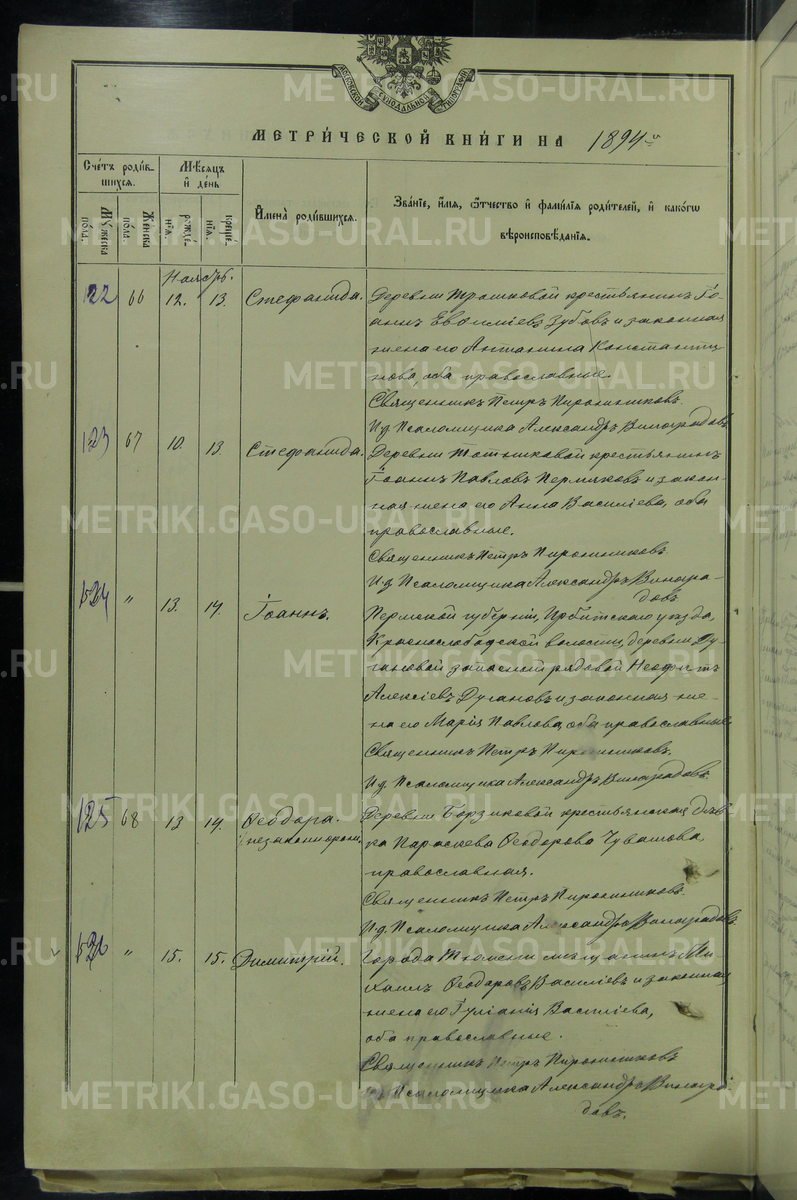 МОСКОВСКОЙ СѴНОДАЛЬНОЙ ТИПОГРАФІИ
МЕТРИ́ЧЕСКОЙ КНИ́ГИ НА 1894 й
Сче́тъ роди́в-
шихся.
Мѣ́сяцъ
и҆ де́нь
И҆мена̀ роди́вшихся.
Зва́нїе, и҆́мя, ѻ҆́тчество и҆ фами́лїя роди́телей, и҆ како́гѡ
вѣроисповѣ́данїя.
Му́жеска по́ла.
Же́нска по́ла.
рожде́нїя.
креще́нїя.
Ноябрь.
122 66 12. 13. Стефанида. Деревни Трошковой крестьянинъ Іо-
аннъ Евѳиміевъ Зубовъ и законная
жена его Антонина Константи-
нова, оба православные.
Священникъ Петръ Пирожниковъ.
И. д. Псаломщика Александръ Виноградовъ.
123 67 10. 13. Стефанида. Деревни крестьянинъ
Іоаннъ Павловъ Пермяковъ и закон-
ная жена его Анна Василіева, оба
православные.
Священникъ Петръ Пирожниковъ
И. д. Псаломщика Александръ Виногра-
довъ
124 " 13. 14. Іоаннъ. Пермской губерніи, Ирбитскаго уѣзда,
Краснослободской волости, деревни Ду-
гановой запасный рядовой Неофитъ
Алексіевъ Дугановъ и законная же-
на его Марія Павлова, оба православные.
Священникъ Петръ Пирожниковъ.
И. д. Псаломщика Александръ Виноградовъ.
125 68 13 14. Ѳеодора. Деревни Борзиковой крестьянская дѣв-
(незаконнорожд.) ка Параскева Ѳеодорова Чувашова,
православная.
Священникъ Петръ Пирожниковъ.
И. д. Псаломщика Александръ Виноградовъ.
126 " 15. 15. Димитрій. Города Тюмени мѣщанинъ Ми-
хаилъ Ѳеодоровъ Василіевъ и законная
жена его Іуліанія Василіева,
оба православные.
Священникъ Петръ Пирожниковъ
И. д. Псаломщика Александръ Виногра-
довъ.
METRIKI.GASO-URAL.RU